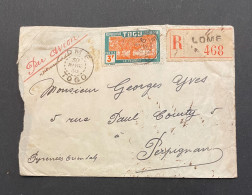 Par Avion
LOME
TOGO
TOGO
3F
R LOME
468
Monsieur Georges Yves
5 rue Paul Courty 5
Perpignan
Pyrenees Orientales